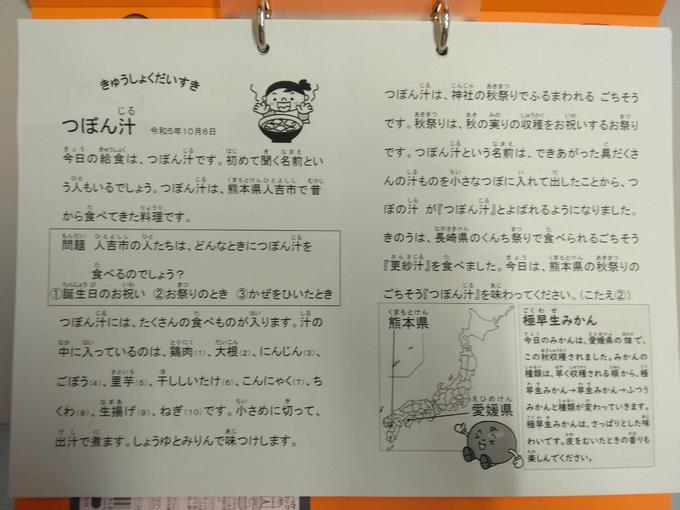 きゅうしょくだいすき
つぼん汁 令和5年10月6日
今日の給食は、つぼん汁です。初めて聞く名前とい
う人もいるでしょう。つぼん汁は、熊本県人吉市で昔
から食べてきた料理です。
問題 人吉市の人たちは、どんなときにつぼん汁を
食べるのでしょう?
①誕生日のお祝い ②お祭りのとき ③かぜをひいたとき
つぼん汁には、たくさんの食べものが入ります。汁の
中に入っているのは、鶏肉(1)、大根(2)、にんじん(3)、
ごぼう(4)、里芋(5)、干ししいたけ(6)、こんにゃく(7)、ち
くわ(8)、生揚げ(9)、ねぎ(10)です。小さめに切って、
出汁で煮ます。しょうゆとみりんで味つけします。
つぼん汁は、神社の秋祭りでふるまわれる ごちそう
です。秋祭りは、秋の実りの収穫をお祝いするお祭り
です。つぼん汁という名前は、できあがった具だくさ
んの汁ものを小さなつぼに入れて出したことから、つ
ぼの汁 が『つぼん汁』とよばれるようになりました。
きのうは、長崎県のくんち祭りで食べられるごちそう
『更紗汁』を食べました。今日は、熊本県の秋祭りの
ごちそう『つぼん汁』を味わってください。(こたえ②)
熊本県
愛媛県
極早生みかん
今日のみかんは、愛媛県の畑で、
この秋収穫されました。みかんの
種類は、早く収穫される順から、極
早生みかん→早生みかん→ふつう
みかんと種類が変わっていきます。
極早生みかんは、さっぱりとした味
わいです。皮をむいたときの香りも
楽しんでください。